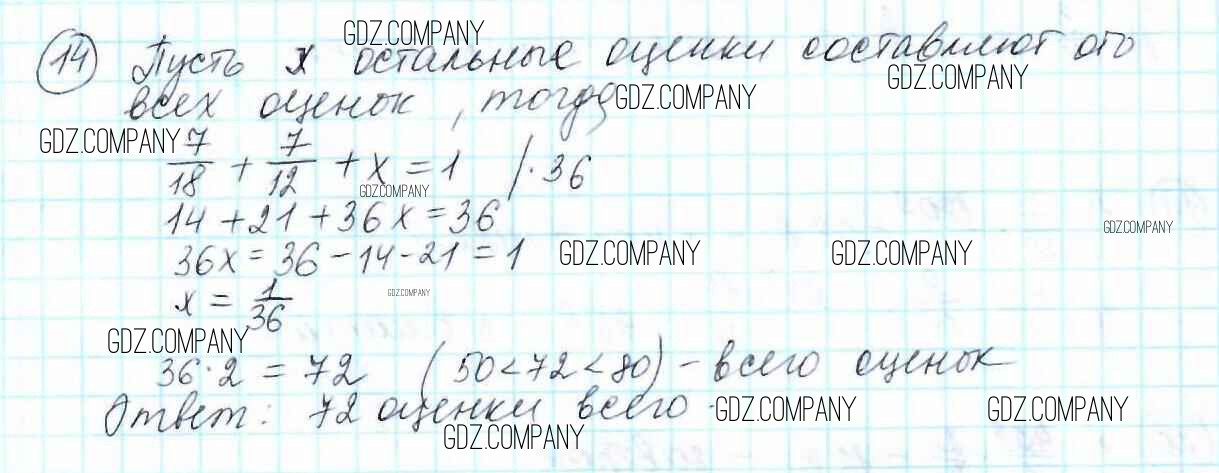 GDZ.COMPANY
14 Пусть x остальные оценки составляют ото
GDZ.COMPANY
всех оценок, тогда GDZ.COMPANY
GDZ.COMPANY
7/18 + 7/12 + x = 1 /·36
GDZ.COMPANY
14 + 21 + 36x = 36
GDZ.COMPANY
36x = 36 - 14 - 21 = 1 GDZ.COMPANY GDZ.COMPANY
x = 1/36 GDZ.COMPANY
GDZ.COMPANY
36·2 = 72 (50<72<80) - всего оценок
Ответ: 72 оценки всего. GDZ.COMPANY GDZ.COMPANY
GDZ.COMPANY